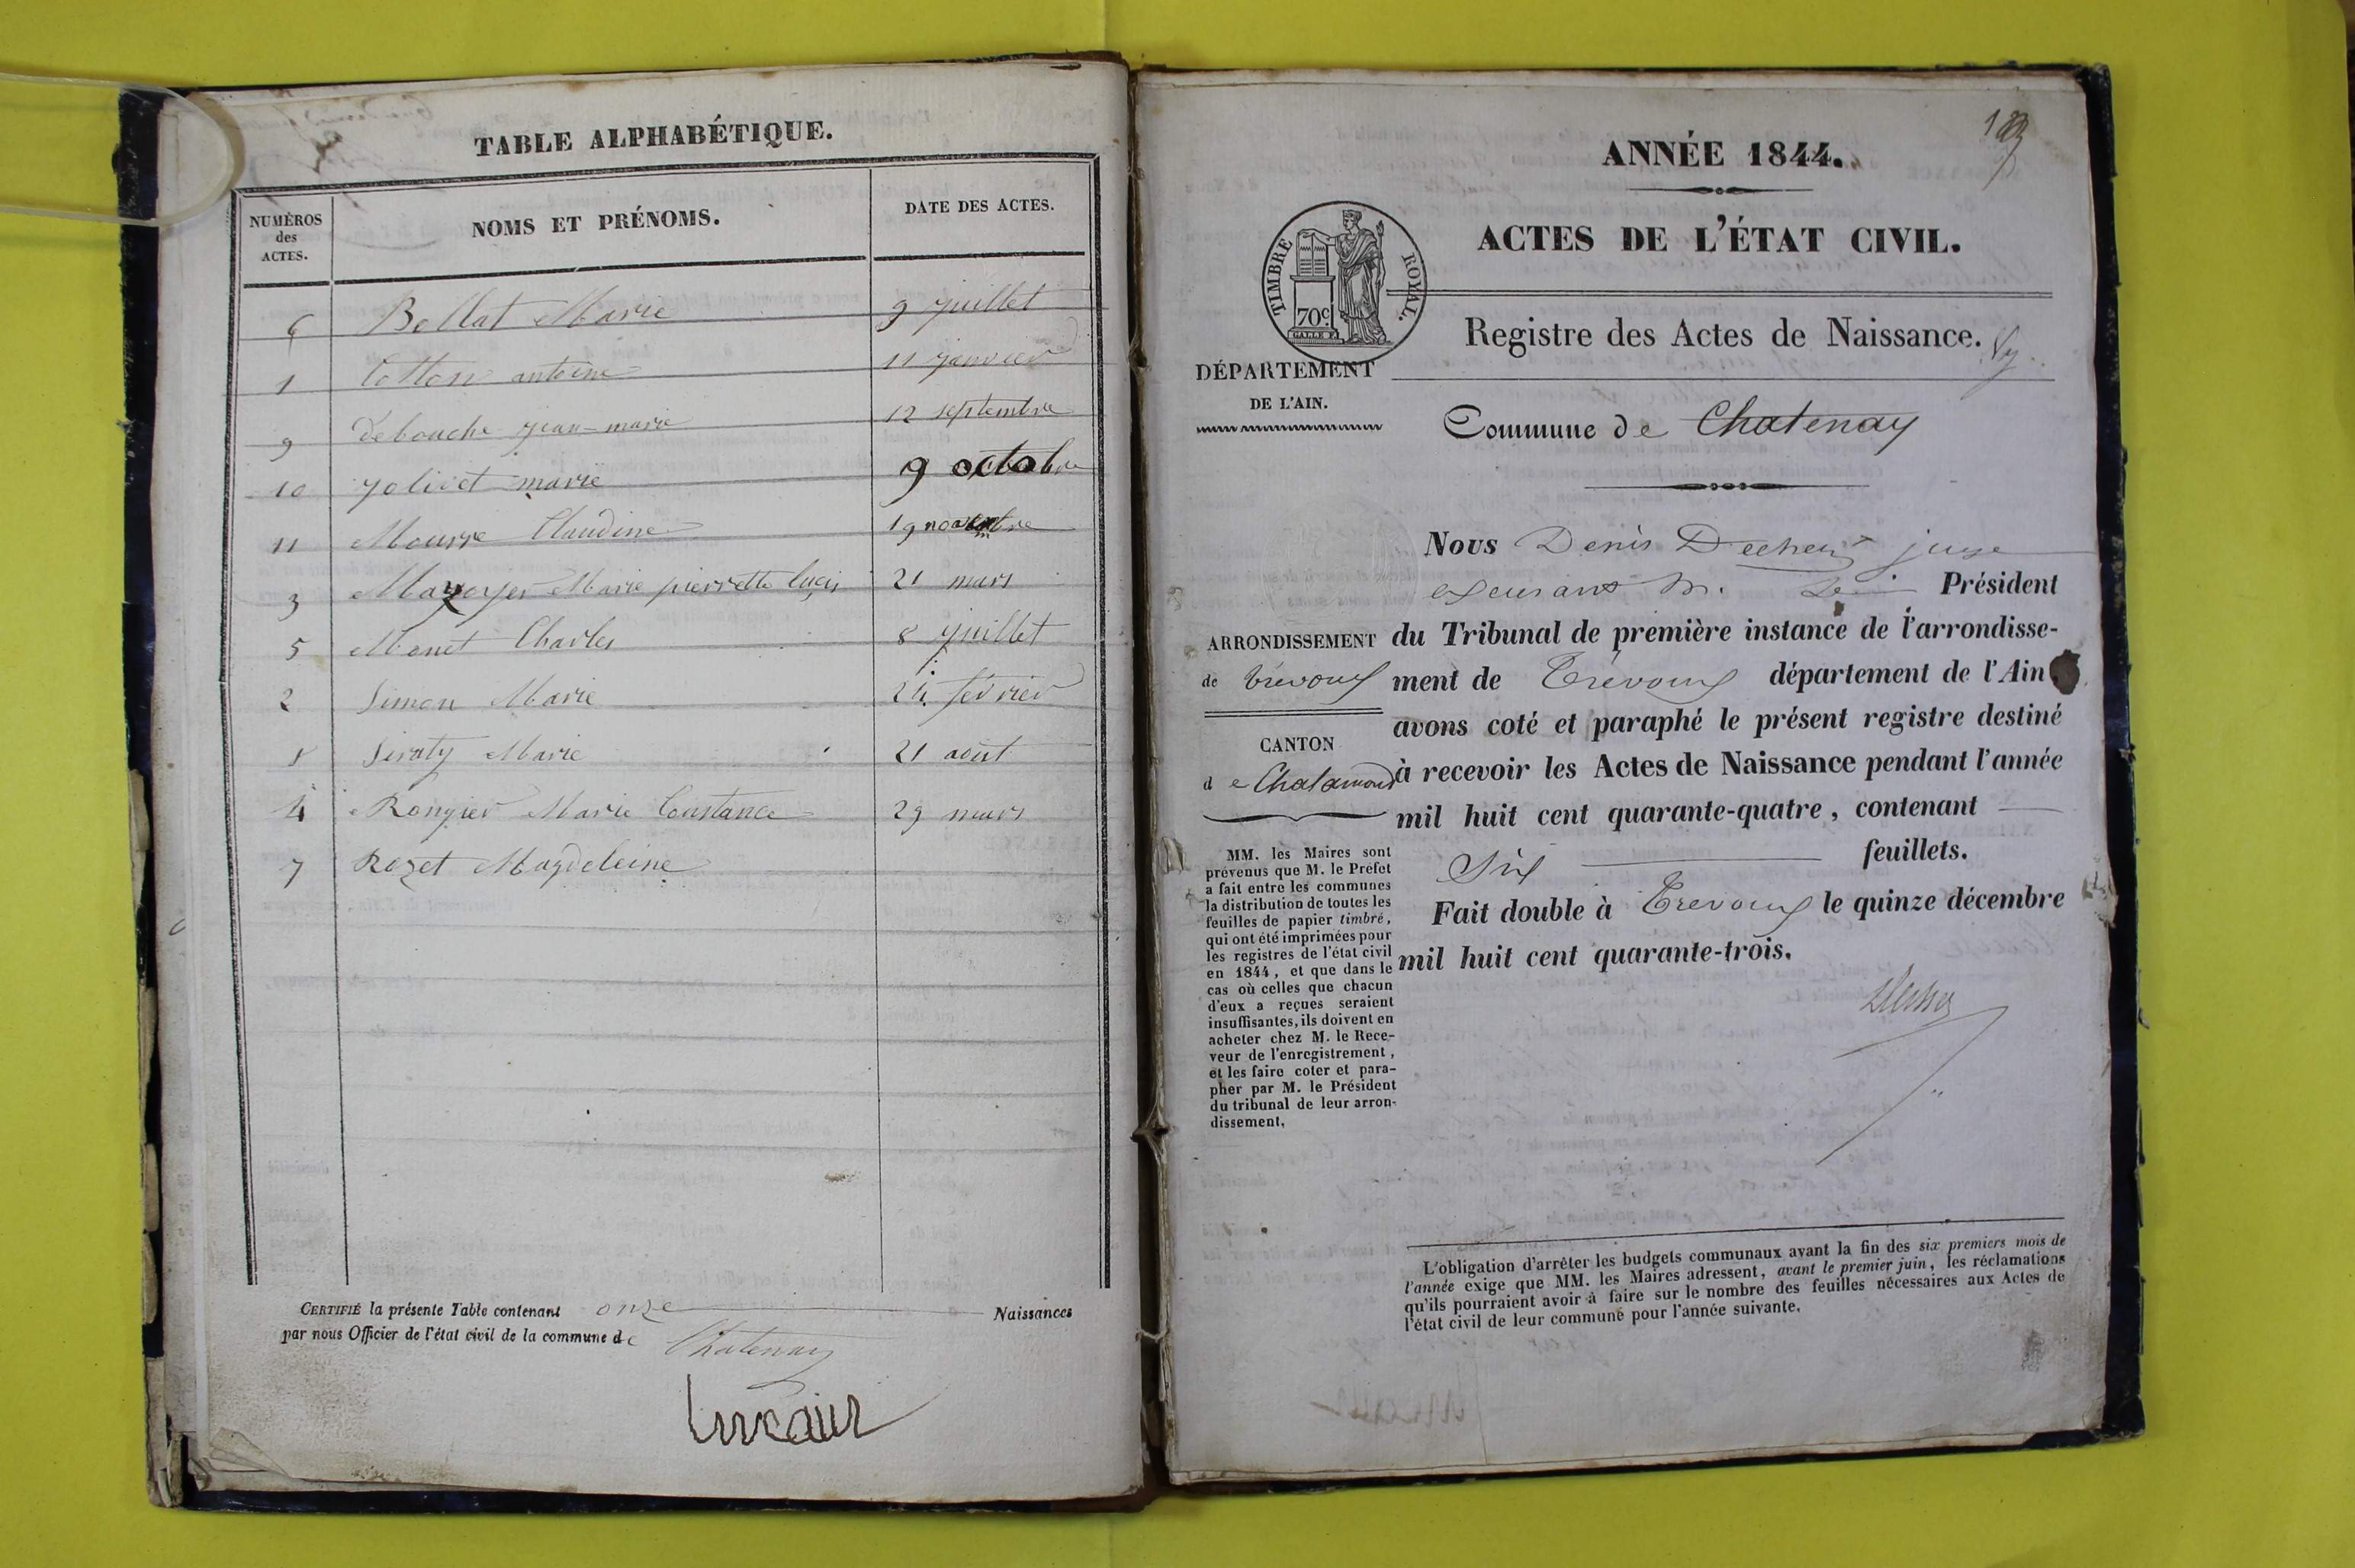 TABLE ALPHABÉTIQUE.
NUMÉROS
des
ACTES.
NOMS ET PRÉNOMS.
DATE DES ACTES.
6 Bollat Marie 9 juillet
1 Cotton antoine 11 janvier
9 debouche jean-marie 12 septembre
10 jolivet marie 9 octobre
11 Mousse Claudine 19 novembre
3 Mazoyer Marie pierrette 21 mars
5 Monet Charles 8 juillet
2 Simon Marie 24 février
8 Siraty Marie 21 août
4 Rongier Marie Constance 29 mars
7 Rozet Magdeleine
CERTIFIÉ la présente Table contenant onze Naissances
par nous Officier de l'état civil de la commune de Chatenay
ANNÉE 1844.
ACTES DE L'ÉTAT CIVIL.
TIMBRE ROYAL.
70c
Registre des Actes de Naissance.
DÉPARTEMENT
DE L'AIN.
Commune de Chatenay
Nous Denis juge
Président
ARRONDISSEMENT
de Trévoux
CANTON
de Chalamont
du Tribunal de première instance de l'arrondisse-
ment de Trévoux département de l'Ain
avons coté et paraphé le présent registre destiné
à recevoir les Actes de Naissance pendant l'année
mil huit cent quarante-quatre, contenant
Six feuillets.
Fait double à Trevoux le quinze décembre
mil huit cent quarante-trois.
MM. les Maires sont
prévenus que M. le Préfet
a fait entre les communes
la distribution de toutes les
feuilles de papier timbré,
qui ont été imprimées pour
les registres de l'état civil
en 1844, et que dans le
cas où celles que chacun
d'eux a reçues seraient
insuffisantes, ils doivent en
acheter chez M. le Rece-
veur de l'enregistrement,
et les faire coter et para-
pher par M. le Président
du tribunal de leur arron-
dissement.
L'obligation d'arrêter les budgets communaux avant la fin des six premiers mois de
l'année exige que MM. les Maires adressent, avant le premier juin, les réclamations
qu'ils pourraient avoir à faire sur le nombre des feuilles nécessaires aux Actes de
l'état civil de leur commune pour l'année suivante.